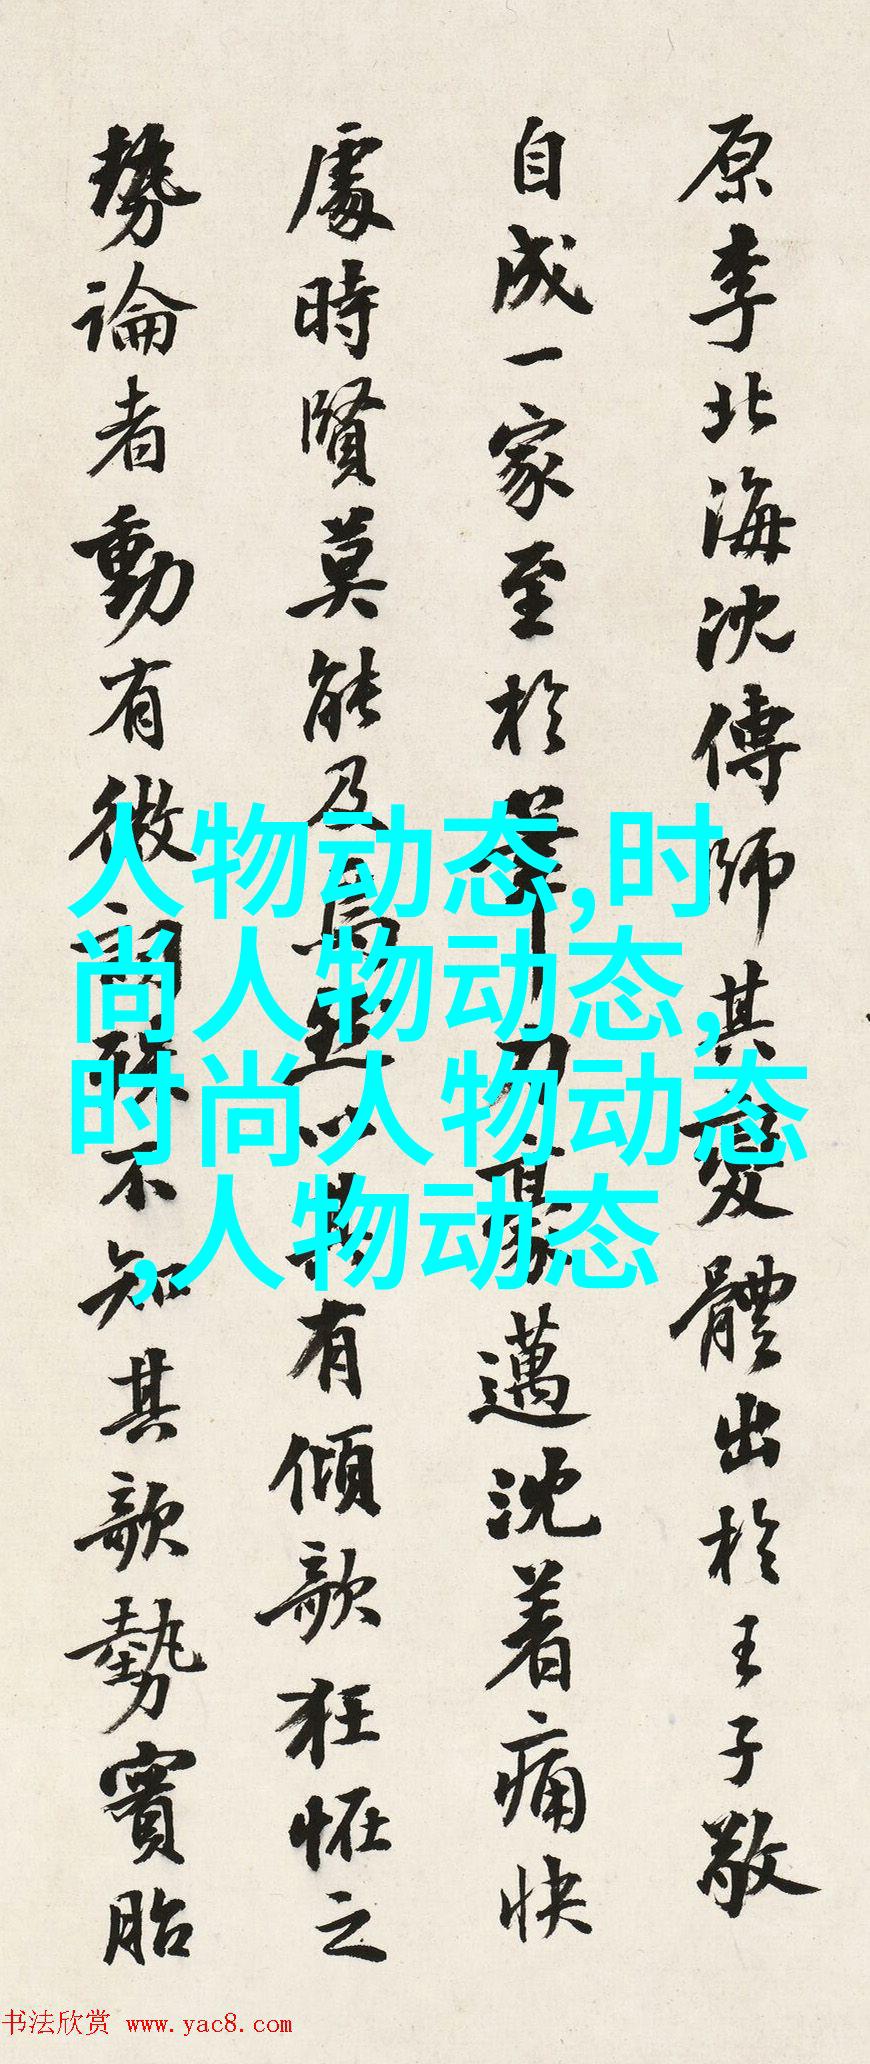 原李北海沈傳師其變體出於王子敬
自成一家至於筆力豪邁沈着痛快
處時賢莫能及焉然以其有傾欹狂怪之
勢論者動有微詞殊不知其欹勢實胎
人物动态,时
尚人物动态,
时尚人物动态
,人物动态
书法欣赏 www.yac8.com